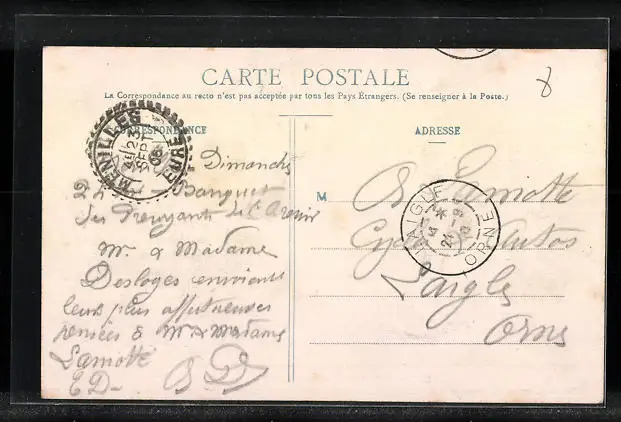 CARTE POSTALE
La Correspondance au recto n'est pas acceptée par tous les Pays Étrangers. (Se renseigner à la Poste.)
CORRESPONDANCE
ADRESSE
MENILLES
23
SEPT
EURE
Dimanche
Banquet
Mr. & Madame
Desloges envoient
leurs plus affectueuses
pensées à Mr & Madame
Lamotte
ED-
M
Lamotte
Cycles & Autos
Laigle
Orne
LAIGLE
ORNE
8